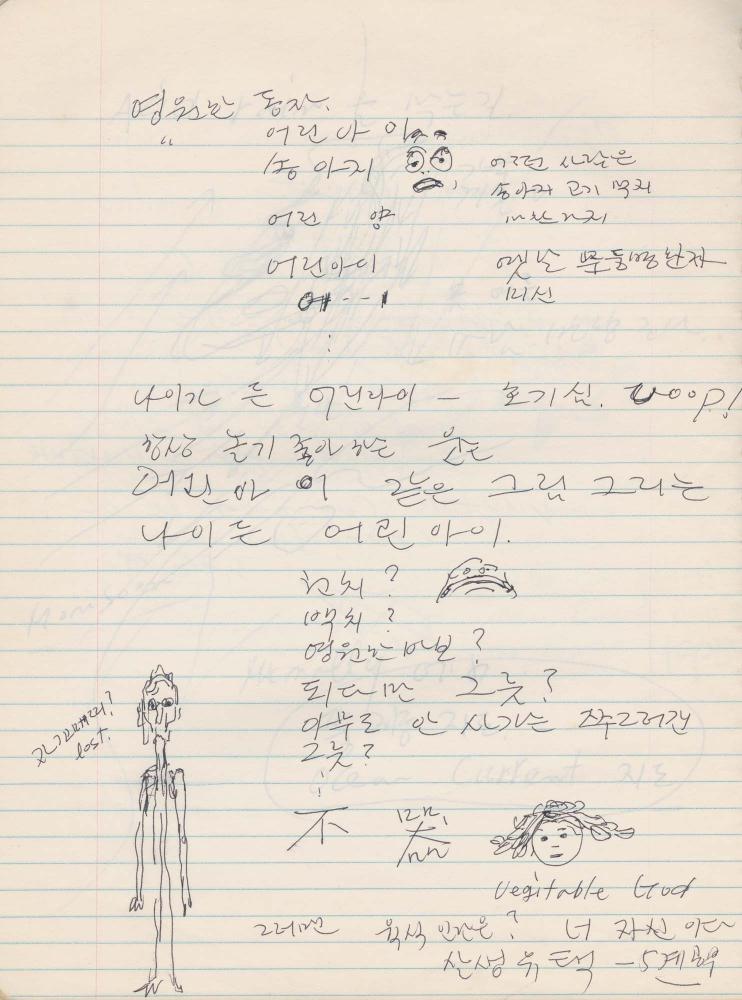 영원한 동자.
" 어린 아 이
송 아지
어떤 사람은
송아지 고기 먹지
마찬가지
어린 양
어린아이
옛날
미신
어 - - - 1
나이가 든 어린아이 - 호기심. Woop!
항상 놀기 좋아하는 웃는
어린 아 이 같은 그림 그리는
나이든 어린 아이.
천치?
백치?
영원한 바보?
되다만 그릇?
아무도 안 사가는 쭈그러진
그릇?
자기꼬매리?
lost.
不 器
Vegitable God
그러면 육식 인간은? 너 자신 이다
산생 유택 - 5계획